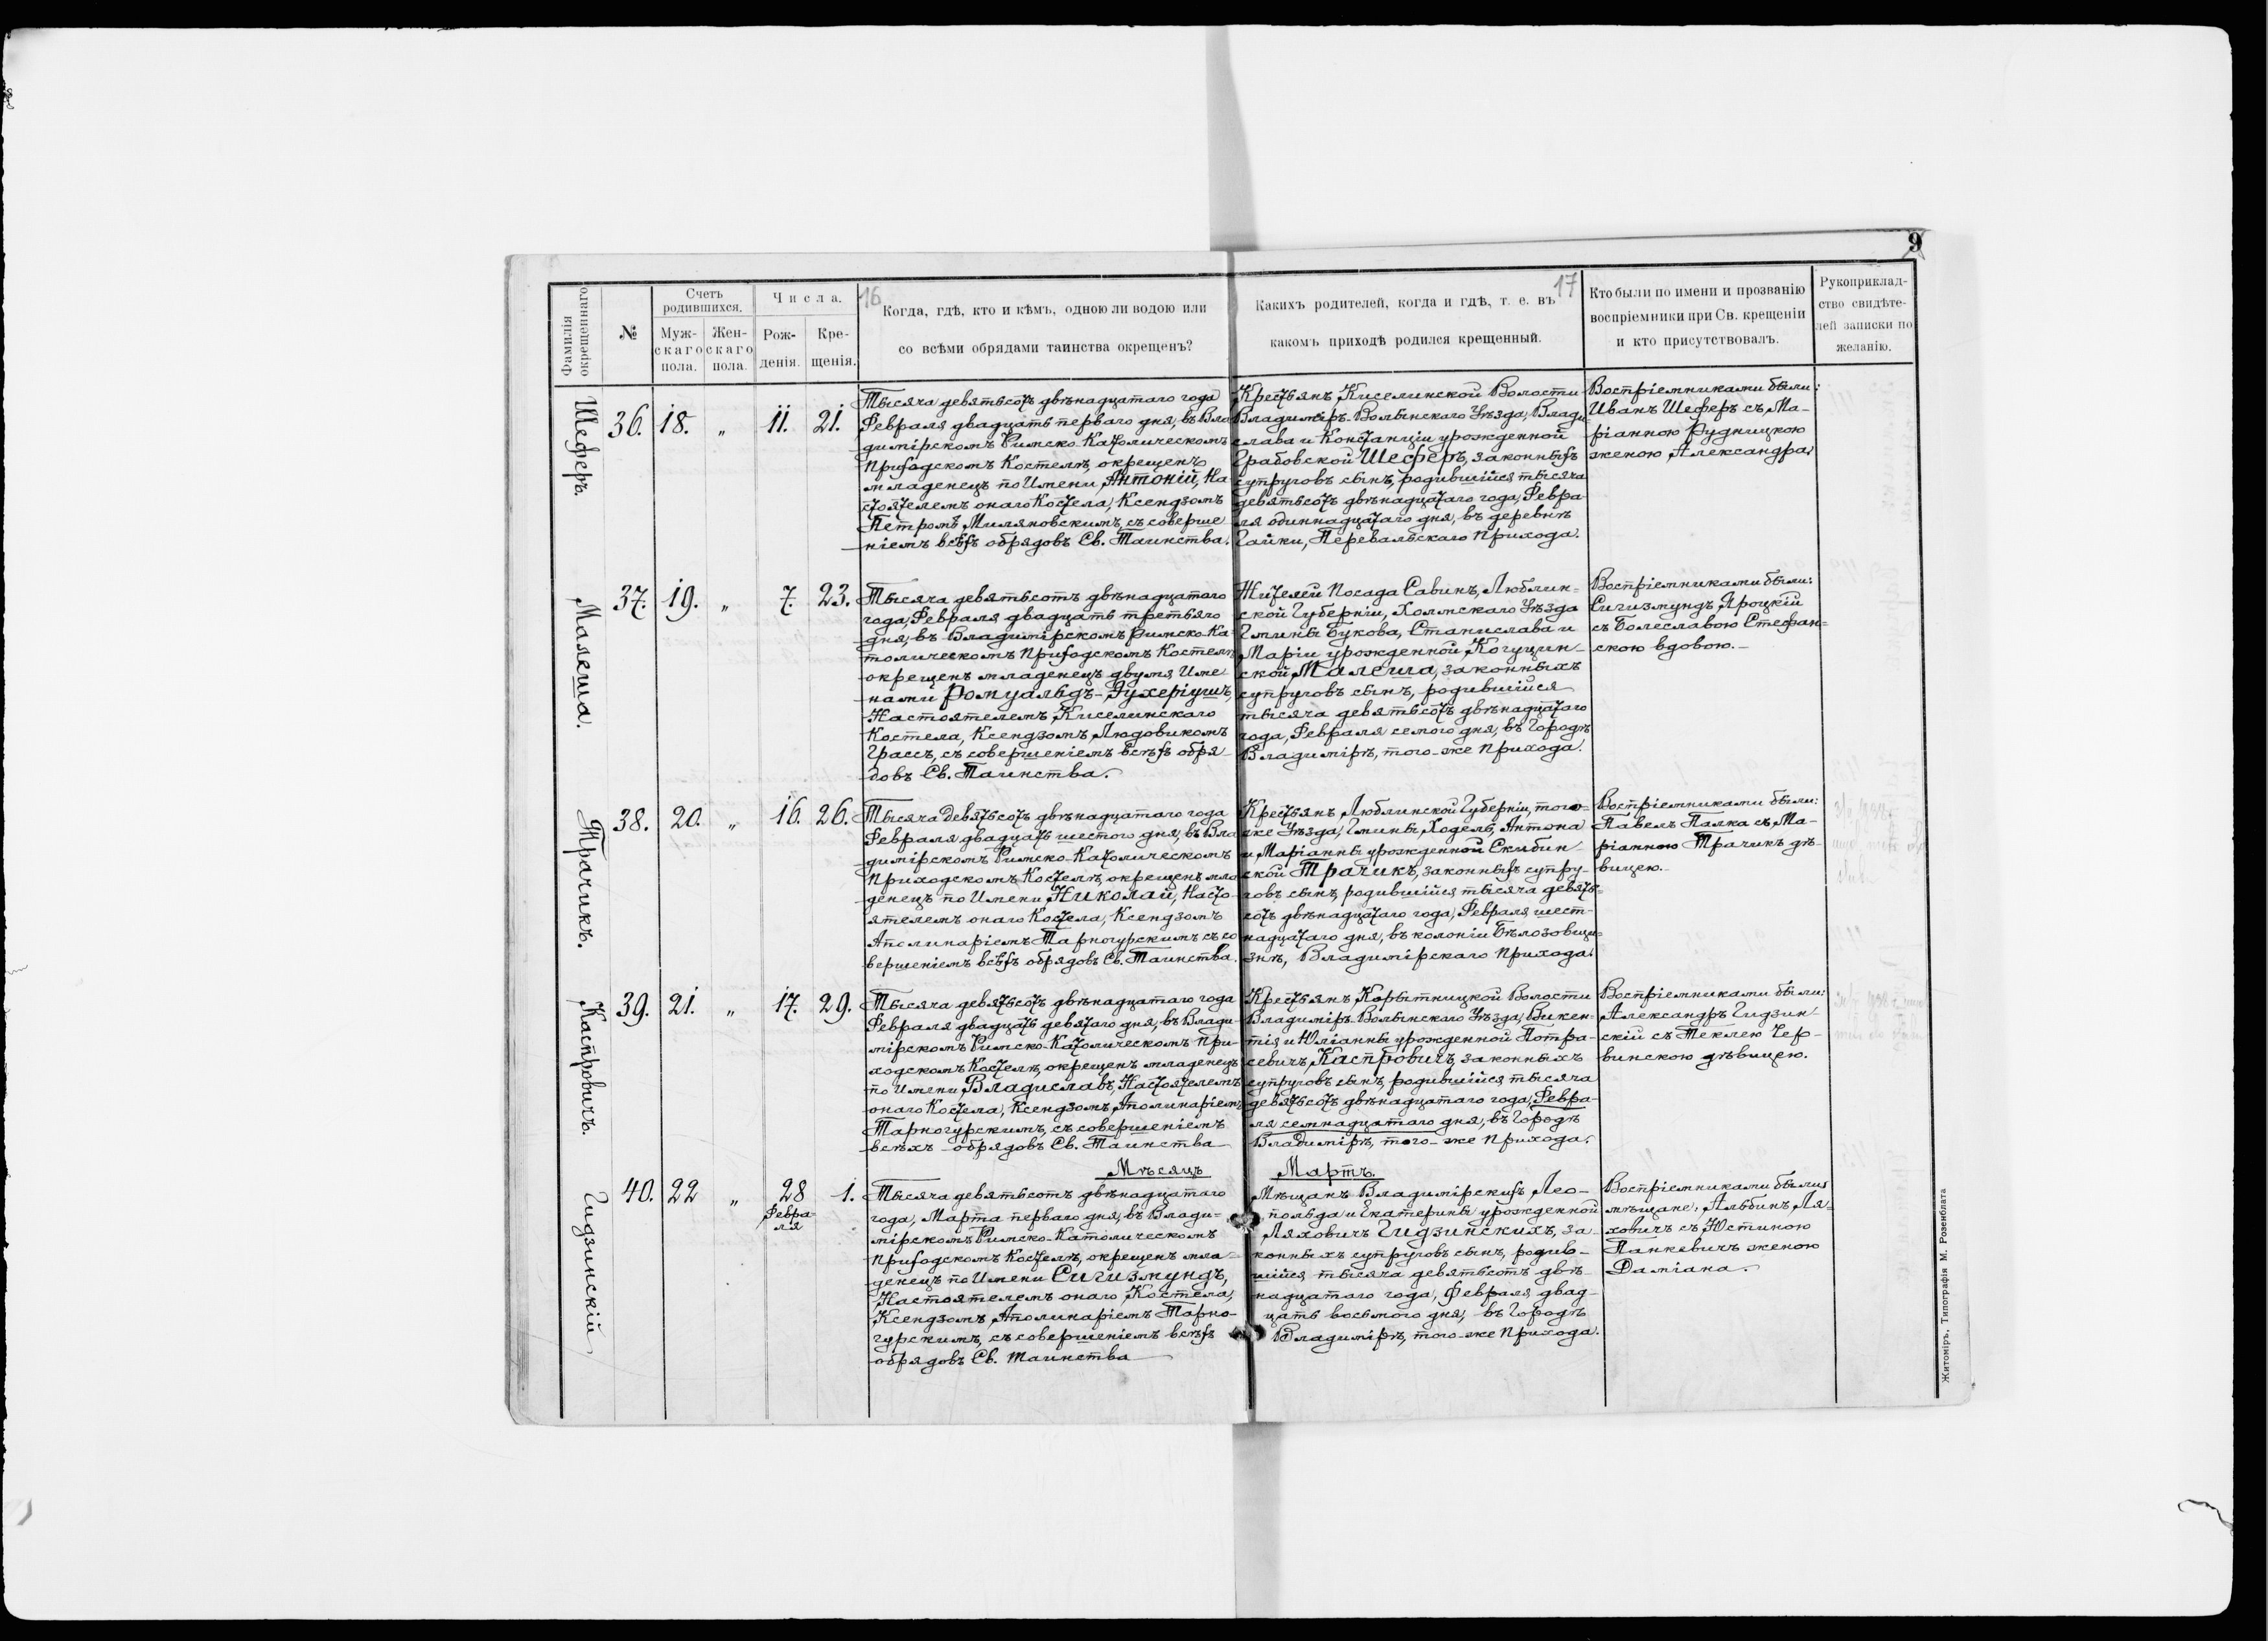 9
16
17
Фамилія окрещеннаго
№
Счетъ родившихся.
Муж-
скаго
пола.
Жен-
скаго
пола.
Числа.
Рож-
денія.
Кре-
щенія.
Когда, гдѣ, кто и кѣмъ, одною ли водою или
со всѣми обрядами таинства окрещенъ?
Какихъ родителей, когда и гдѣ, т. е. въ
какомъ приходѣ родился крещенный.
Кто были по имени и прозванію
воспріемники при Св. крещеніи
и кто присутствовалъ.
Рукоприклад-
ство свидѣте-
лей записки по
желанію.
Шеферъ.
36. 18. „ 11. 21.
Тысяча девятьсотъ двѣнадцатаго года
Февраля двадцать перваго дня, въ Вла
димірскомъ Римско-Католическомъ
приходскомъ Костелѣ, окрещенъ
младенецъ по Имени, Антоній, На
стоятелемъ онаго Костела, Ксендзомъ
Петромъ Миляновскимъ, съ соверше
ніемъ всѣхъ обрядовъ Св. Таинства.
Крестьянъ Киселинской Волости
Владиміръ-Волынскаго Уѣзда, Влади
слава и Констанціи урожденной
Грабовской Шеферъ, законныхъ
супруговъ сынъ, родившійся тысяча
девятьсотъ двѣнадцатаго года, Февра-
ля одиннадцатаго дня, въ деревнѣ
Гайки, Перевальскаго прихода.
Воспріемниками были:
Иванъ Шеферъ съ Ма-
ріанною Рудницкою
женою Александра
Малеша.
37. 19. „ 7. 23.
Тысяча девятьсотъ двѣнадцатаго
года, Февраля двадцать третьяго
дня, въ Владимірскомъ Римско-Ка
толическомъ приходскомъ Костелѣ
окрещенъ младенецъ двумя Име
нами Ромуальдъ-Эухеріушъ,
Настоятелемъ Киселинскаго
Костела, Ксендзомъ Людовикомъ
Грассъ, съ совершеніемъ всѣхъ обря
довъ Св. Таинства.
Жителей Посада Савинъ, Люблин-
ской Губерніи, Холмскаго Уѣзда
Гмины Букова, Станислава и
Маріи урожденной Когуцин-
ской Малеша, законныхъ
супруговъ сынъ, родившійся
тысяча девятьсотъ двѣнадцатаго
года, Февраля семого дня, въ Городѣ
Владимірѣ, того-же прихода.
Воспріемниками были:
Сигизмундъ Яроцкій
съ Болеславою Стефан=
скою вдовою.-
Трачикъ.
38. 20. „ 16. 26.
Тысяча девятьсотъ двѣнадцатаго года
Февраля двадцать шестого дня, въ Вла
димірскомъ Римско-Католическомъ
Приходскомъ Костелѣ, окрещенъ мла
денецъ по Имени Николай, Насто-
ятелемъ онаго Костела, Ксендзомъ
Аполинаріемъ Тарногурскимъ съ со
вершеніемъ всѣхъ обрядовъ Св. Таинства.
Крестьянъ Люблинской Губерніи, того-
же Уѣзда, Гмины Ходель, Антона
и Маріанны урожденной Скибин
ской Трачикъ, законныхъ супру-
говъ сынъ, родившійся тысяча девять-
сотъ двѣнадцатаго года, Февраля шест-
надцатаго дня, въ колоніи Бѣлозовщи=
знѣ, Владимірскаго прихода.
Воспріемниками были:
Павелъ Палка съ Ма-
ріанною Трачикъ дѣ-
вицею.
Каспровичъ.
39. 21. „ 17. 29.
Тысяча девятьсотъ двѣнадцатаго года
Февраля двадцать девятаго дня, въ Влади-
мірскомъ Римско-Католическомъ При-
ходскомъ Костелѣ, окрещенъ младенецъ
по Имени Владиславъ, Настоятелемъ
онаго Костела, Ксендзомъ Аполинаріемъ
Тарногурскимъ, съ совершеніемъ
всѣхъ обрядовъ Св. Таинства
Крестьянъ Корытницкой Волости
Владиміръ-Волынскаго Уѣзда, Викен-
тія и Юліанны урожденной Потра-
севичъ, Каспровичъ, законныхъ
супруговъ сынъ, родившійся тысяча
девятьсотъ двѣнадцатаго года, Февра-
ля семнадцатаго дня, въ Городѣ
Владимірѣ, того-же прихода.
Воспріемниками были:
Александръ Гидзин
скій съ Теклею Чер-
винскою дѣвицею.
Мѣсяцъ Мартъ.
Гидзинскій
40. 22 „ 28 1.
Февра=
ля
Тысяча девятьсотъ двѣнадцатаго
года, Марта перваго дня, въ Влади=
мірскомъ Римско-Католическомъ
приходскомъ Костелѣ, окрещенъ мла-
денецъ по Имени Сигизмундъ,
Настоятелемъ онаго Костела,
Ксендзомъ Аполинаріемъ Тарно-
гурскимъ, съ совершеніемъ всѣхъ
обрядовъ Св. таинства
Мѣщанъ Владимірскихъ Лео-
польда и Екатерины урожденной
Ляховичъ Гидзинскихъ, за-
конныхъ супруговъ сынъ, родив-
шійся тысяча девятьсотъ двѣ
надцатаго года, Февраля двад-
цать восьмого дня, въ Городѣ
Владимірѣ, того-же прихода.
Воспріемниками были
мѣщане, Альбинъ Ля=
ховичъ съ Юстиною
Панкевичъ женою
Даміана.
Житоміръ, Типографія М. Розенблата